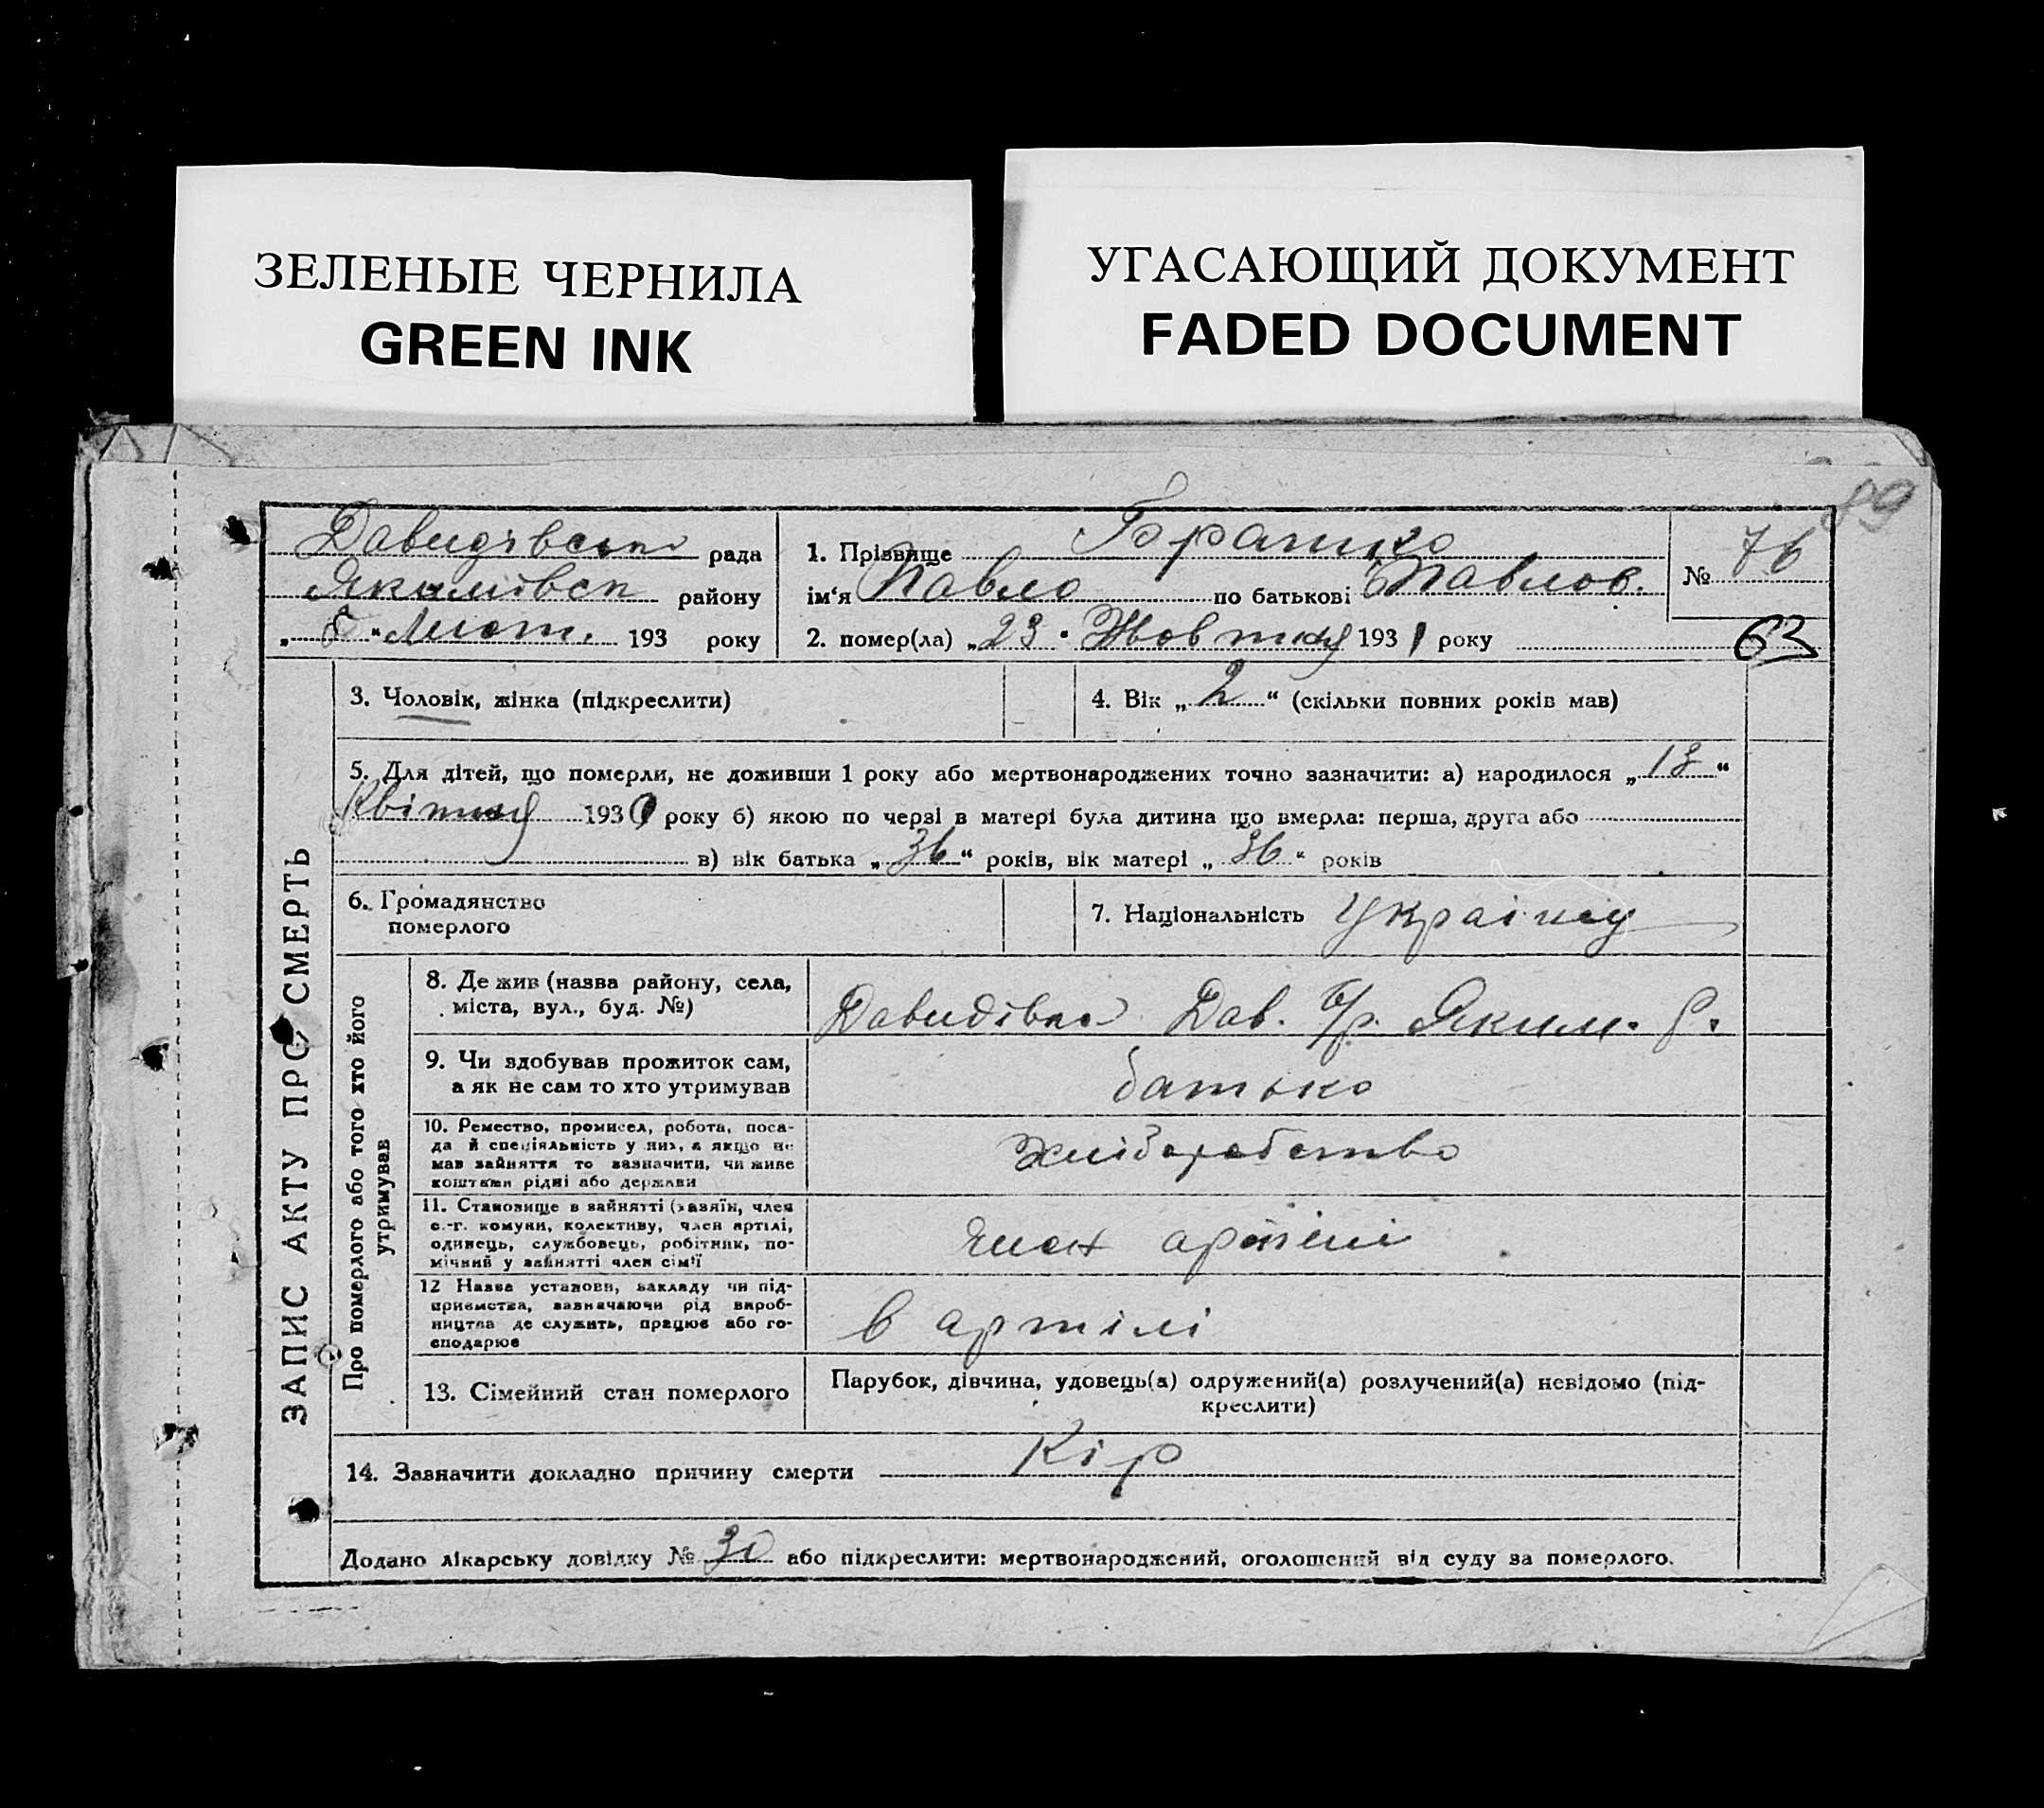 ЗЕЛЕНЫЕ ЧЕРНИЛА
GREEN INK
УГАСАЮЩИЙ ДОКУМЕНТ
FADED DOCUMENT
89
Давидівська рада
Якимівськ району
„ 8 “ Лют. 193 року
1. Прізвище
ім‘я Павло по батькові Павлов.
2. помер(ла) „23 Жовтня 1931 року
№ 76
63
ЗАПИС АКТУ ПРО СМЕРТЬ
3. Чоловік, жінка (підкреслити)
4. Вік „ 2 “ (скільки повних років мав)
5. Для дітей, що померли, не доживши 1 року або мертвонароджених точно зазначити: а) народилося „ 13 “
Квітня 193 року б) якою по черзі в матері була дитина що вмерла: перша, друга або
в) вік батька „ 36 “ років, вік матері „ 36 “ років
6. Громадянство
померлого
7. Національність
Про померлого або того хто його
утримував
8. Де жив (назва району, села,
міста, вул., буд. №)
Давидівка Дав. с/р. Яким. р.
9. Чи здобував прожиток сам,
а як не сам то хто утримував
батько
10. Ремество, промисел, робота, поса-
да й спеціяльність у них, а якщо не
мав зайняття то зазначити, чи живе
коштами рідні або держави
Хліборобство
11. Становище в зайнятті (хазяїн, член
с.-г. комуни, колективу, член артілі,
одинець, службовець, робітник, по-
мічний у зайнятті член сім‘ї
член артілі
12 Назва установи, закладу чи під-
приємства, зазначаючи рід вироб-
ництва де служить, працює або го-
сподарює
в артілі
13. Сімейний стан померлого
Парубок, дівчина, удовець(а) одружений(а) розлучений(а) невідомо (під-
креслити)
14. Зазначити докладно причину смерти Кір
Додано лікарську довідку № 30 або підкреслити: мертвонароджений, оголошений від суду за померлого.